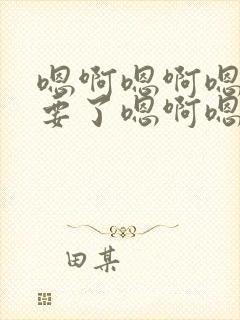 嗯啊嗯啊嗯
要了嗯啊嗯
田某